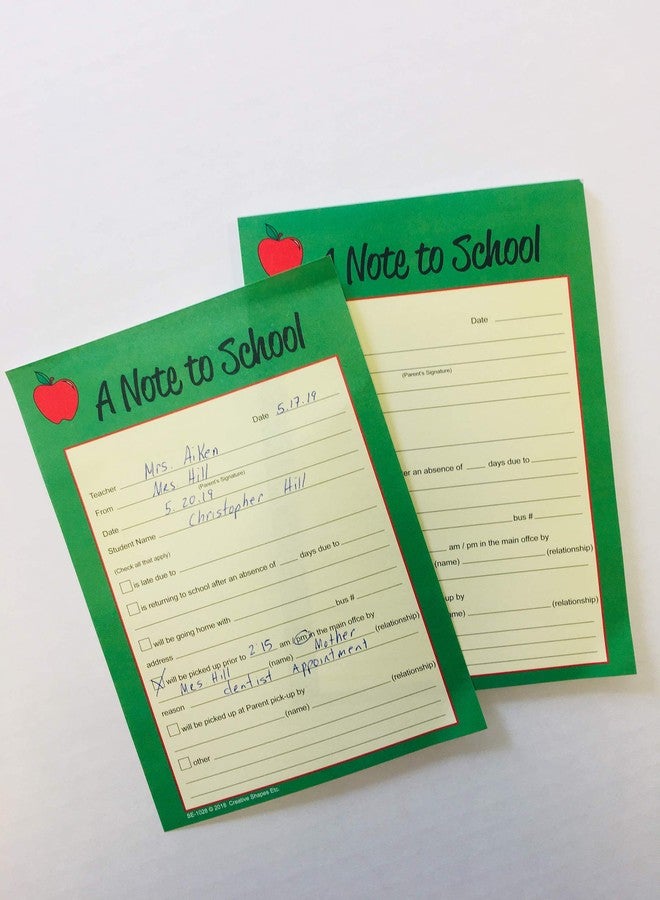 A Note to School
Date 5.17.19
Teacher Mrs. Aiken
From Mrs Hill
(Parent's Signature)
Date 5.20.19
Student Name Christopher Hill
(Check all that apply)
is late due to
is returning to school after an absence of ____ days due to
will be going home with ____ bus #
address
will be picked up prior to 2 15 am / pm in the main offce by
Mrs Hill (name) Mother (relationship)
reason dentist appointment
will be picked up at Parent pick-up by
(name) (relationship)
other
SE-1028 © 2016 Creative Shapes Etc.
A Note to School
Date
(Parent's Signature)
er an absence of ____ days due to
bus #
am / pm in the main office by
(name) (relationship)
up by
me) (relationship)